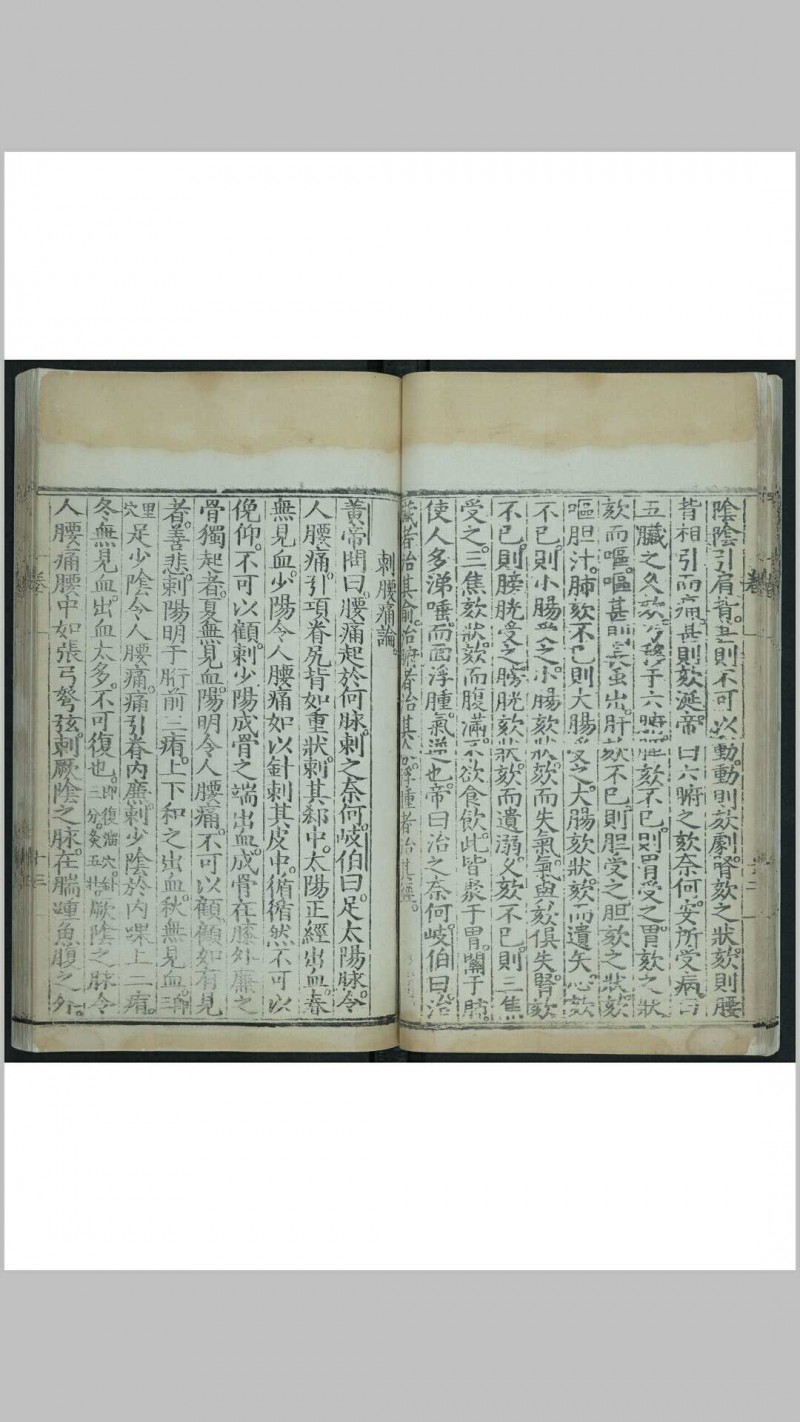 陰陰引肩背。甚則不可以動。動則欬劇。腎欬之狀。欬則腰
背相引而痛。甚則欬涎。帝曰六腑之欬奈何。安所受病。
五臟之久欬。乃移于六腑。脾欬不已。則胃受之。胃欬之狀
欬而嘔。嘔甚則長蟲出。肝欬不已。則胆受之。胆欬之狀。欬
嘔胆汁。肺欬不已。則大腸受之。大腸欬狀。欬而遺矢。心欬
不已。則小腸受之。小腸欬狀。欬而失氣。氣與欬俱失。腎欬
不已。則膀胱受之。膀胱欬狀。欬而遺溺。久欬不已。則三焦
受之。三焦欬狀。欬而腹滿。不欲食飲。此皆聚于胃。關于肺。
使人多涕唾。而面浮腫。氣逆也。帝曰治之奈何。岐伯曰治
臟者治其俞。治腑者治其合。浮腫者治其經。
刺腰痛論。
黃帝問曰。腰痛起於何脉。刺之奈何。岐伯曰。足太陽脉。令
人腰痛。引項脊尻背如重狀。刺其郄中。太陽正經出血。春
無見血。少陽令人腰痛如以針刺其皮中。循循然不可以
俛仰。不可以顧。刺少陽成骨之端出血。成骨在膝外廉之
骨獨起者。夏無見血。陽明令人腰痛。不可以顧。顧如有見
者。善悲。刺陽明于䯒前三痏。上下和之出血。秋無見血。三
里穴足少陰令人腰痛。痛引脊內廉。刺少陰於內踝上二痏。
冬無見血。出血太多。不可復也。即復溜穴針三分。灸五壯。厥陰之脉。令
人腰痛。腰中如張弓弩弦。刺厥陰之脉。在腨踵魚腹之外。
卷
十三